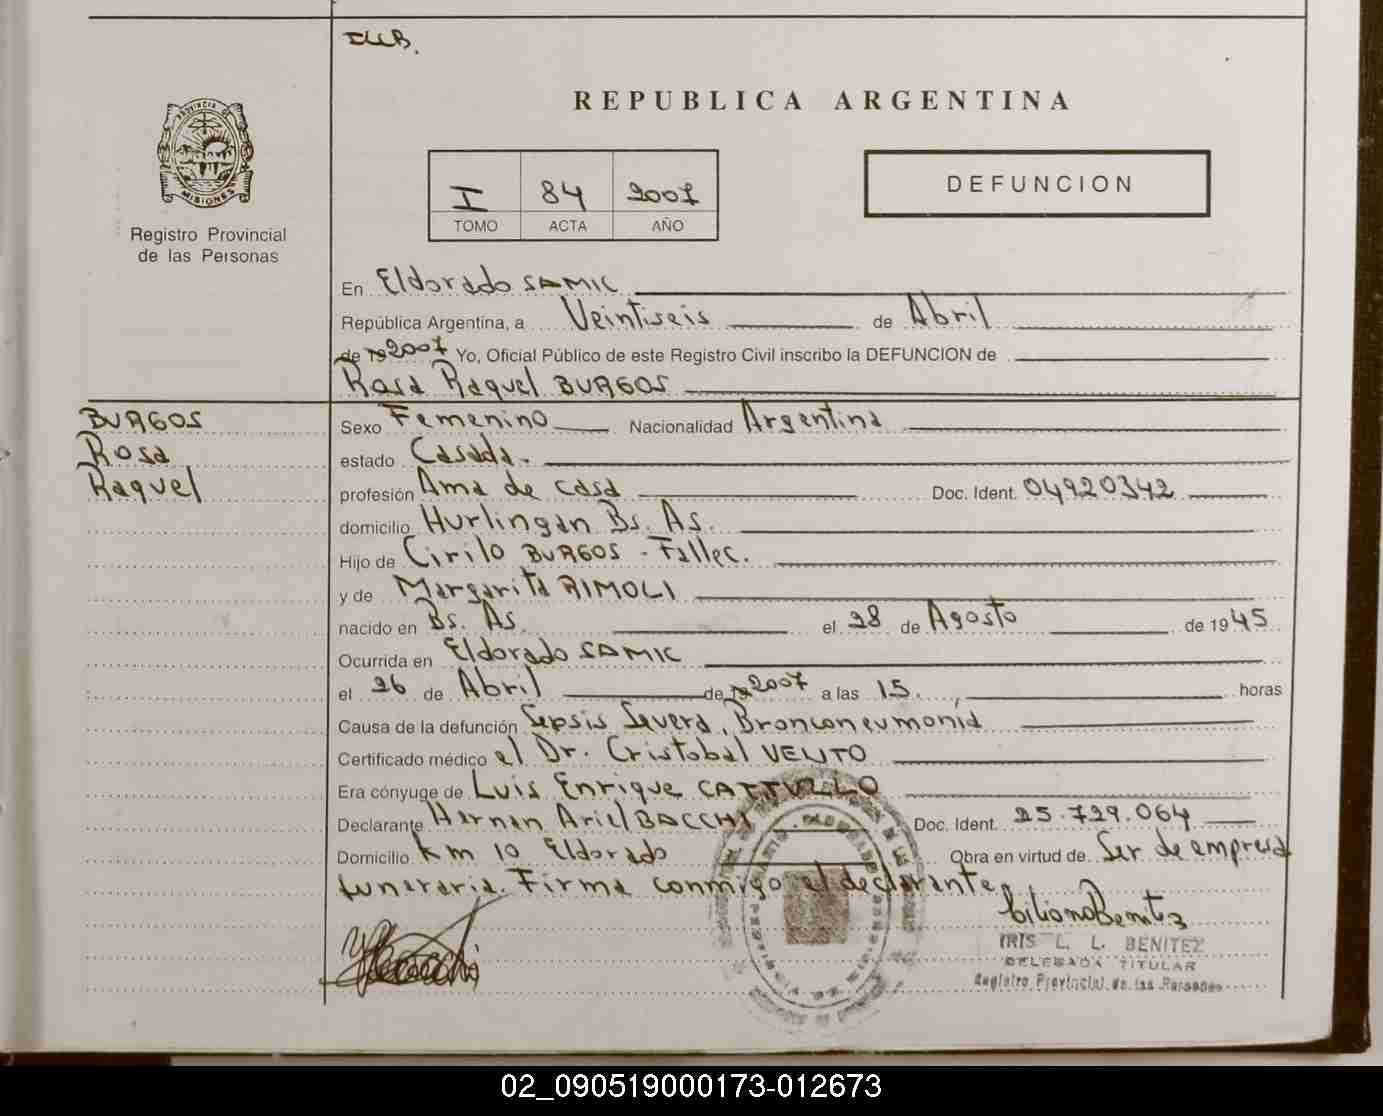 REPUBLICA ARGENTINA
PROVINCIA DE
MISIONES
Registro Provincial
de las Personas
I 84 2007
TOMO ACTA AÑO
DEFUNCION
En Eldorado SAMIC
República Argentina, a Veintiseis de Abril
de 19 2007 Yo, Oficial Público de este Registro Civil inscribo la DEFUNCION de
Rosa Raquel BURGOS
BURGOS
Rosa
Raquel
Sexo Femenino Nacionalidad Argentina
estado Casada.
profesión Ama de casa Doc. Ident. 04920342
domicilio Hurlingan Bs. As.
Hijo de Cirilo BURGOS - Fallec.
y de Margarita RIMOLI
nacido en Bs. As. el 28 de Agosto de 1945
Ocurrida en Eldorado SAMIC
el 26 de Abril de 19 2007 a las 15 , horas
Causa de la defunción Sepsis Severa, Bronconeumonia
Certificado médico el Dr. Cristobal VENTO
Era cónyuge de Luis Enrique CATTULLO
Declarante Hernan Ariel BACCHI Doc. Ident. 25.729.064
Domicilio Km 10 Eldorado Obra en virtud de Ser de empresa
funeraria. Firma conmigo el declarante.
IRIS L. L. BENITEZ
DELEGADA TITULAR
Registro Provincial de las Personas
02_090519000173-012673